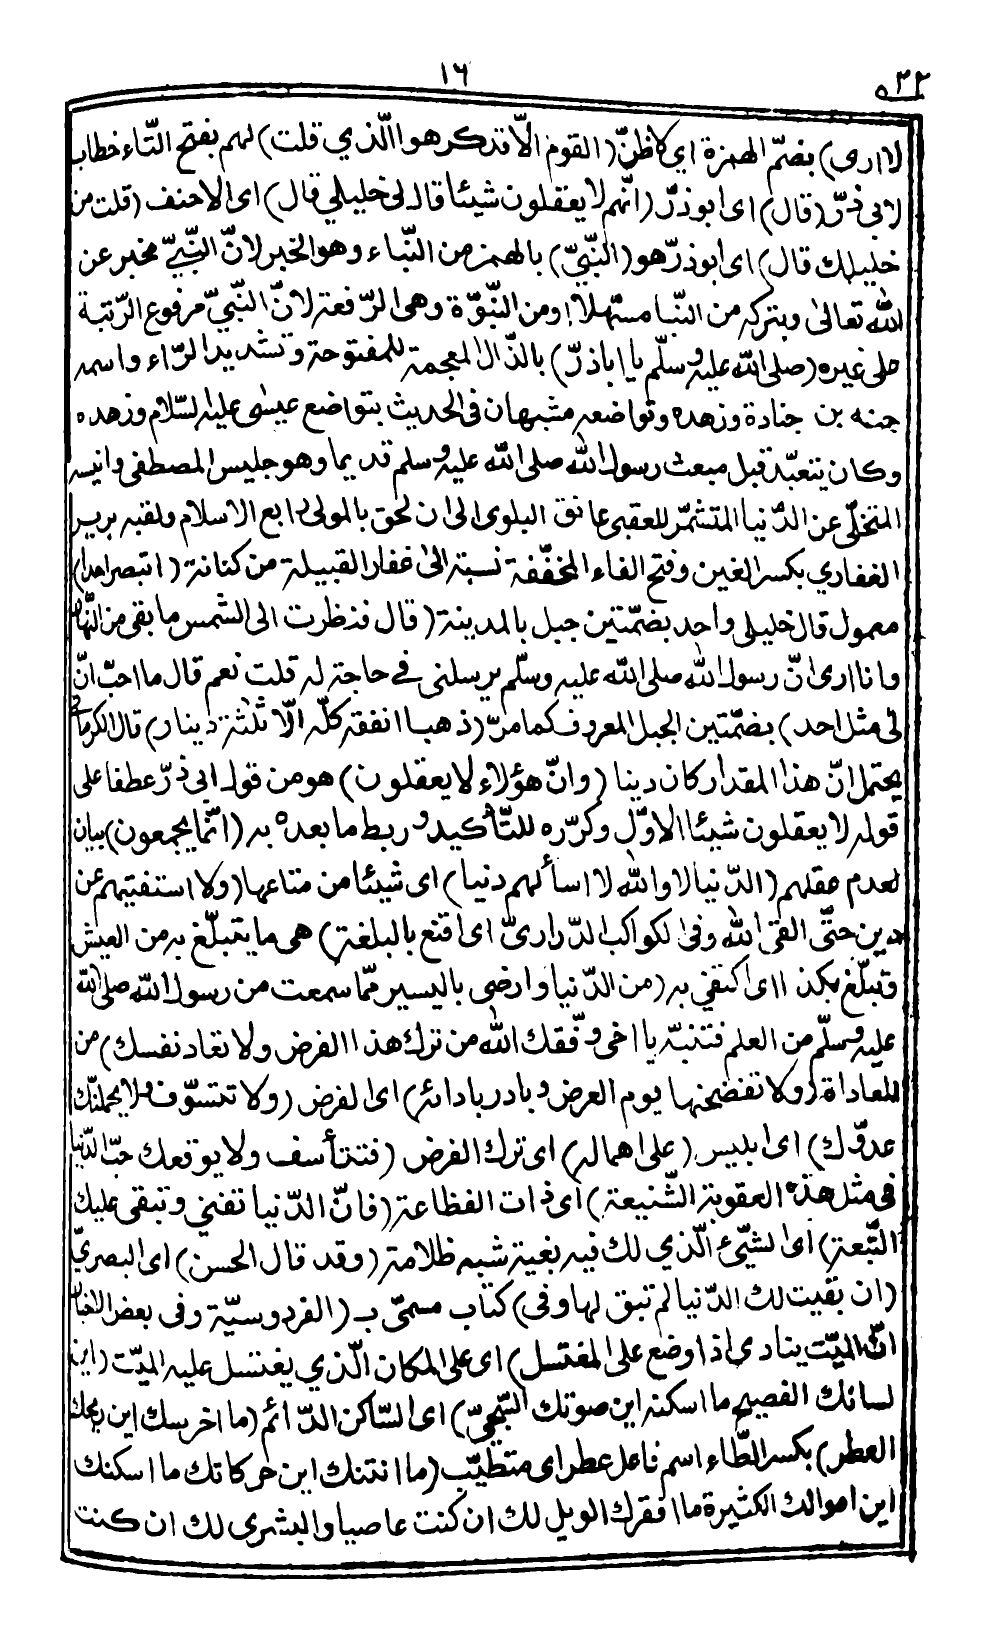 ١٦
٣٢
لا ارى) بضمّ الهمزة اي كاظنّ (القوم الّا قد كرهوا الّذي قلت) لهم بفتح التّاء خطاب
لابي ذرّ (قال) اى ابو ذرّ (انّهم لا يعقلون شيئا قال لى خليلي قال) اى الاحنف (قلت من
خليلك قال) اى ابو ذرّ هو (النّبيّ) بالهمز من النّباء وهو الخبر لانّ النّبيّ مخبر عن
الله تعالىٰ وبتركه من النبا مسهّلا او من النّبوّة وهى الرّفعة لانّ النّبيّ مرفوع الرّتبة
على غيره (صلى الله عليه وسلّم يا اباذرّ) بالذّال المعجمة المفتوحة وتشديد الرّاء واسمه
جنبه بن جنادة وزهده وتواضعه مشبهان فى الحديث بتواضع عيسٰى عليه السّلام وزهده
وكان يتعبّد قبل مبعث رسول الله صلى الله عليه وسلم قديما وهو جليس المصطفى وانيسه
المتخلّي عن الدّنيا المتشمّر للعقبى عانق البلوى الى ان لحق بالمولى رابع الاسلام ولقبه برير
الغفاري بكسر الغين وفتح الفاء المخفّفة نسبة الىٰ غفار القبيلة من كنانة (اتبصر احدا)
معمول قال خليلي واحد بضمّتين جبل بالمدينة (قال فنظرت الى الشّمس ما بقى من النّهار
وانا ارىٰ انّ رسول الله صلى الله عليه وسلّم يرسلنى في حاجة له قلت نعم قال ما احبّ انّ
لى مثل احد) بضمّتين الجبل المعروف كما مرّ (ذهبا انفقه كلّه الّا ثلٰثة دينار) قال الكرمانى
يحتمل انّ هذا المقدار كان دينا (وانّ هؤلاء لا يعقلون) هو من قول ابى ذرّ عطفا على
قوله لا يعقلون شيئا الاوّل وكرّره للتّأكيد وربط ما بعده به (انّما يجمعون) بيان
لعدم عقلهم (الدّنيا لا والله لا اسألهم دنيا) اى شيئا من متاعها (ولا استفتيهم عن
دين حتّى القى الله وفى لكواكب الدّرارىّ اى اقنع بالبلغة) هى ما يتبلّغ به من العيش
وتبلّغ بكذا اى اكتفي به (من الدّنيا وارضى باليسير ممّا سمعت من رسول الله صلى الله
عليه وسلّم من العلم فتنبّه يا اخى وفّقك الله من ترك هذا الفرض ولا تعاد نفسك) من
المعاداة (ولا تفضحنها يوم العرض وبادر بادائه) اى الفرض (ولا تتسوّف ولا يحملنّك
عدوّك) اى ابليس (على اهماله) اى ترك الفرض (فتتأسف ولا يوقعك حبّ الدّنيا
فى مثل هذه العقوبة الشّنيعة) اى ذات الفظاعة (فانّ الدّنيا تفني وتبقى عليك
التّبعة) اى الشّيئ الّذي لك فيه بغية شبه ظلامة (وقد قال الحسن) اى البصريّ
(ان بقيت لك الدّنيا لم تبق لها وفى) كتاب مسمّى بـ (الفردوسيّة وفى بعض الاخبار
انّ الميّت ينادى اذا وضع على المغتسل) اى على المكان الّذي يغتسل عليه الميّت (اين
لسانك الفصيح ما اسكته اين صوتك الشّجيّ) اى السّاكن الدّائم (ما اخرسك اين ريحك
العطر) بكسر الطّاء اسم فاعل عطر اى متطيّب (ما انتنك اين حركاتك ما اسكنك
اين اموالك الكثيرة ما افقرك الويل لك ان كنت عاصيا والبشرى لك ان كنت